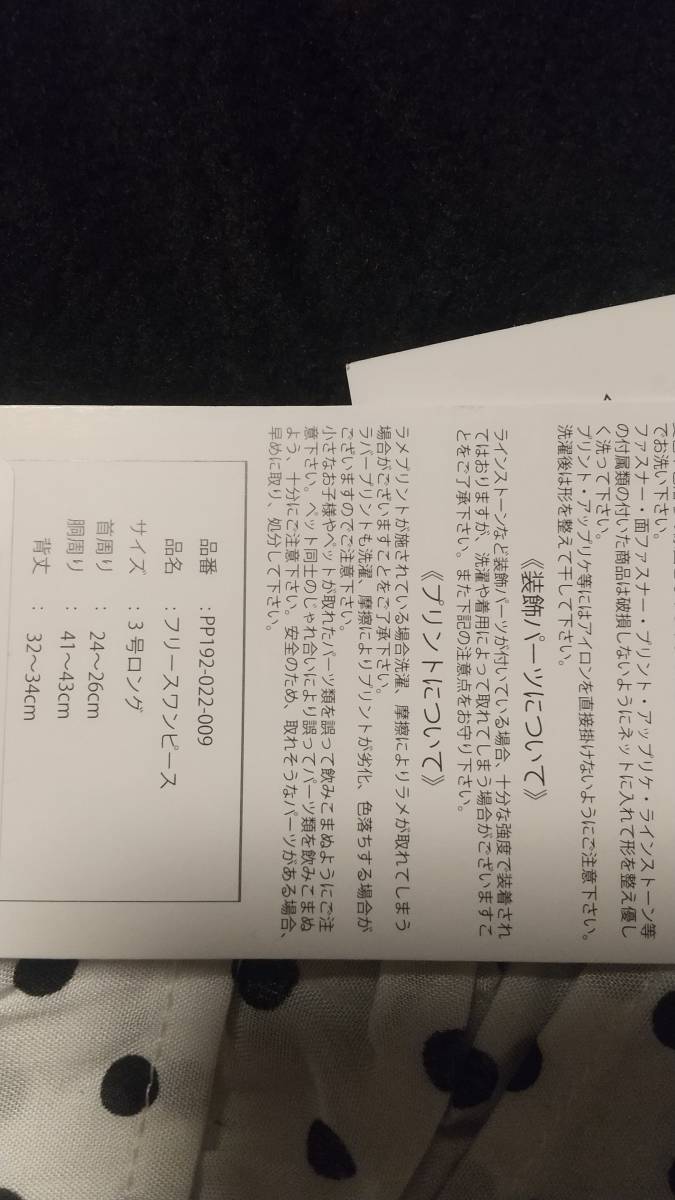 でお洗い下さい。
ファスナー・面ファスナー・プリント・アップリケ・ラインストーン等
の付属類の付いた商品は破損しないようにネットに入れて形を整え優し
く洗って下さい。
プリント・アップリケ等にはアイロンを直接掛けないようにご注意下さい。
洗濯後は形を整えて干して下さい。
《装飾パーツについて》
ラインストーンなど装飾パーツが付いている場合、十分な強度で装着され
てはおりますが、洗濯や着用によって取れてしまう場合がございますこ
とをご了承下さい。また下記の注意点をお守り下さい。
《プリントについて》
ラメプリントが施されている場合洗濯、摩擦によりラメが取れてしまう
場合がございますことをご了承下さい。
ラバープリントも洗濯、摩擦によりプリントが劣化、色落ちする場合が
ございますのでご注意下さい。
小さなお子様やペットが取れたパーツ類を誤って飲みこまぬようにご注
意下さい。ペット同士のじゃれ合いにより誤ってパーツ類を飲みこまぬ
よう、十分にご注意下さい。安全のため、取れそうなパーツがある場合、
早めに取り、処分して下さい。
品番 : PP192-022-009
品名 : フリースワンピース
サイズ : 3号ロング
首周り : 24～26cm
胴周り : 41～43cm
背丈 : 32～34cm